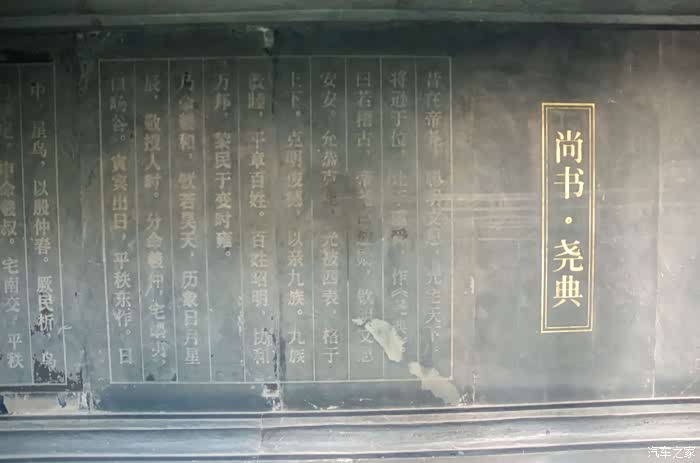 尚书·尧典
昔在帝尧，聪明文思，光宅天下。
将逊于位，让于虞舜，作《尧典》
曰若稽古，帝尧曰放勋，钦明文思
安安。允恭克让，光被四表，格于
上下。克明俊德，以亲九族。九族
既睦，平章百姓。百姓昭明，协和
万邦。黎民于变时雍。
乃命羲和，钦若昊天，历象日月星
辰，敬授人时。分命羲仲，宅嵎夷，
曰旸谷。寅宾出日，平秩东作。日
中，星鸟，以殷仲春。厥民析，鸟
尾。申命羲叔。宅南交，平秩
汽车之家